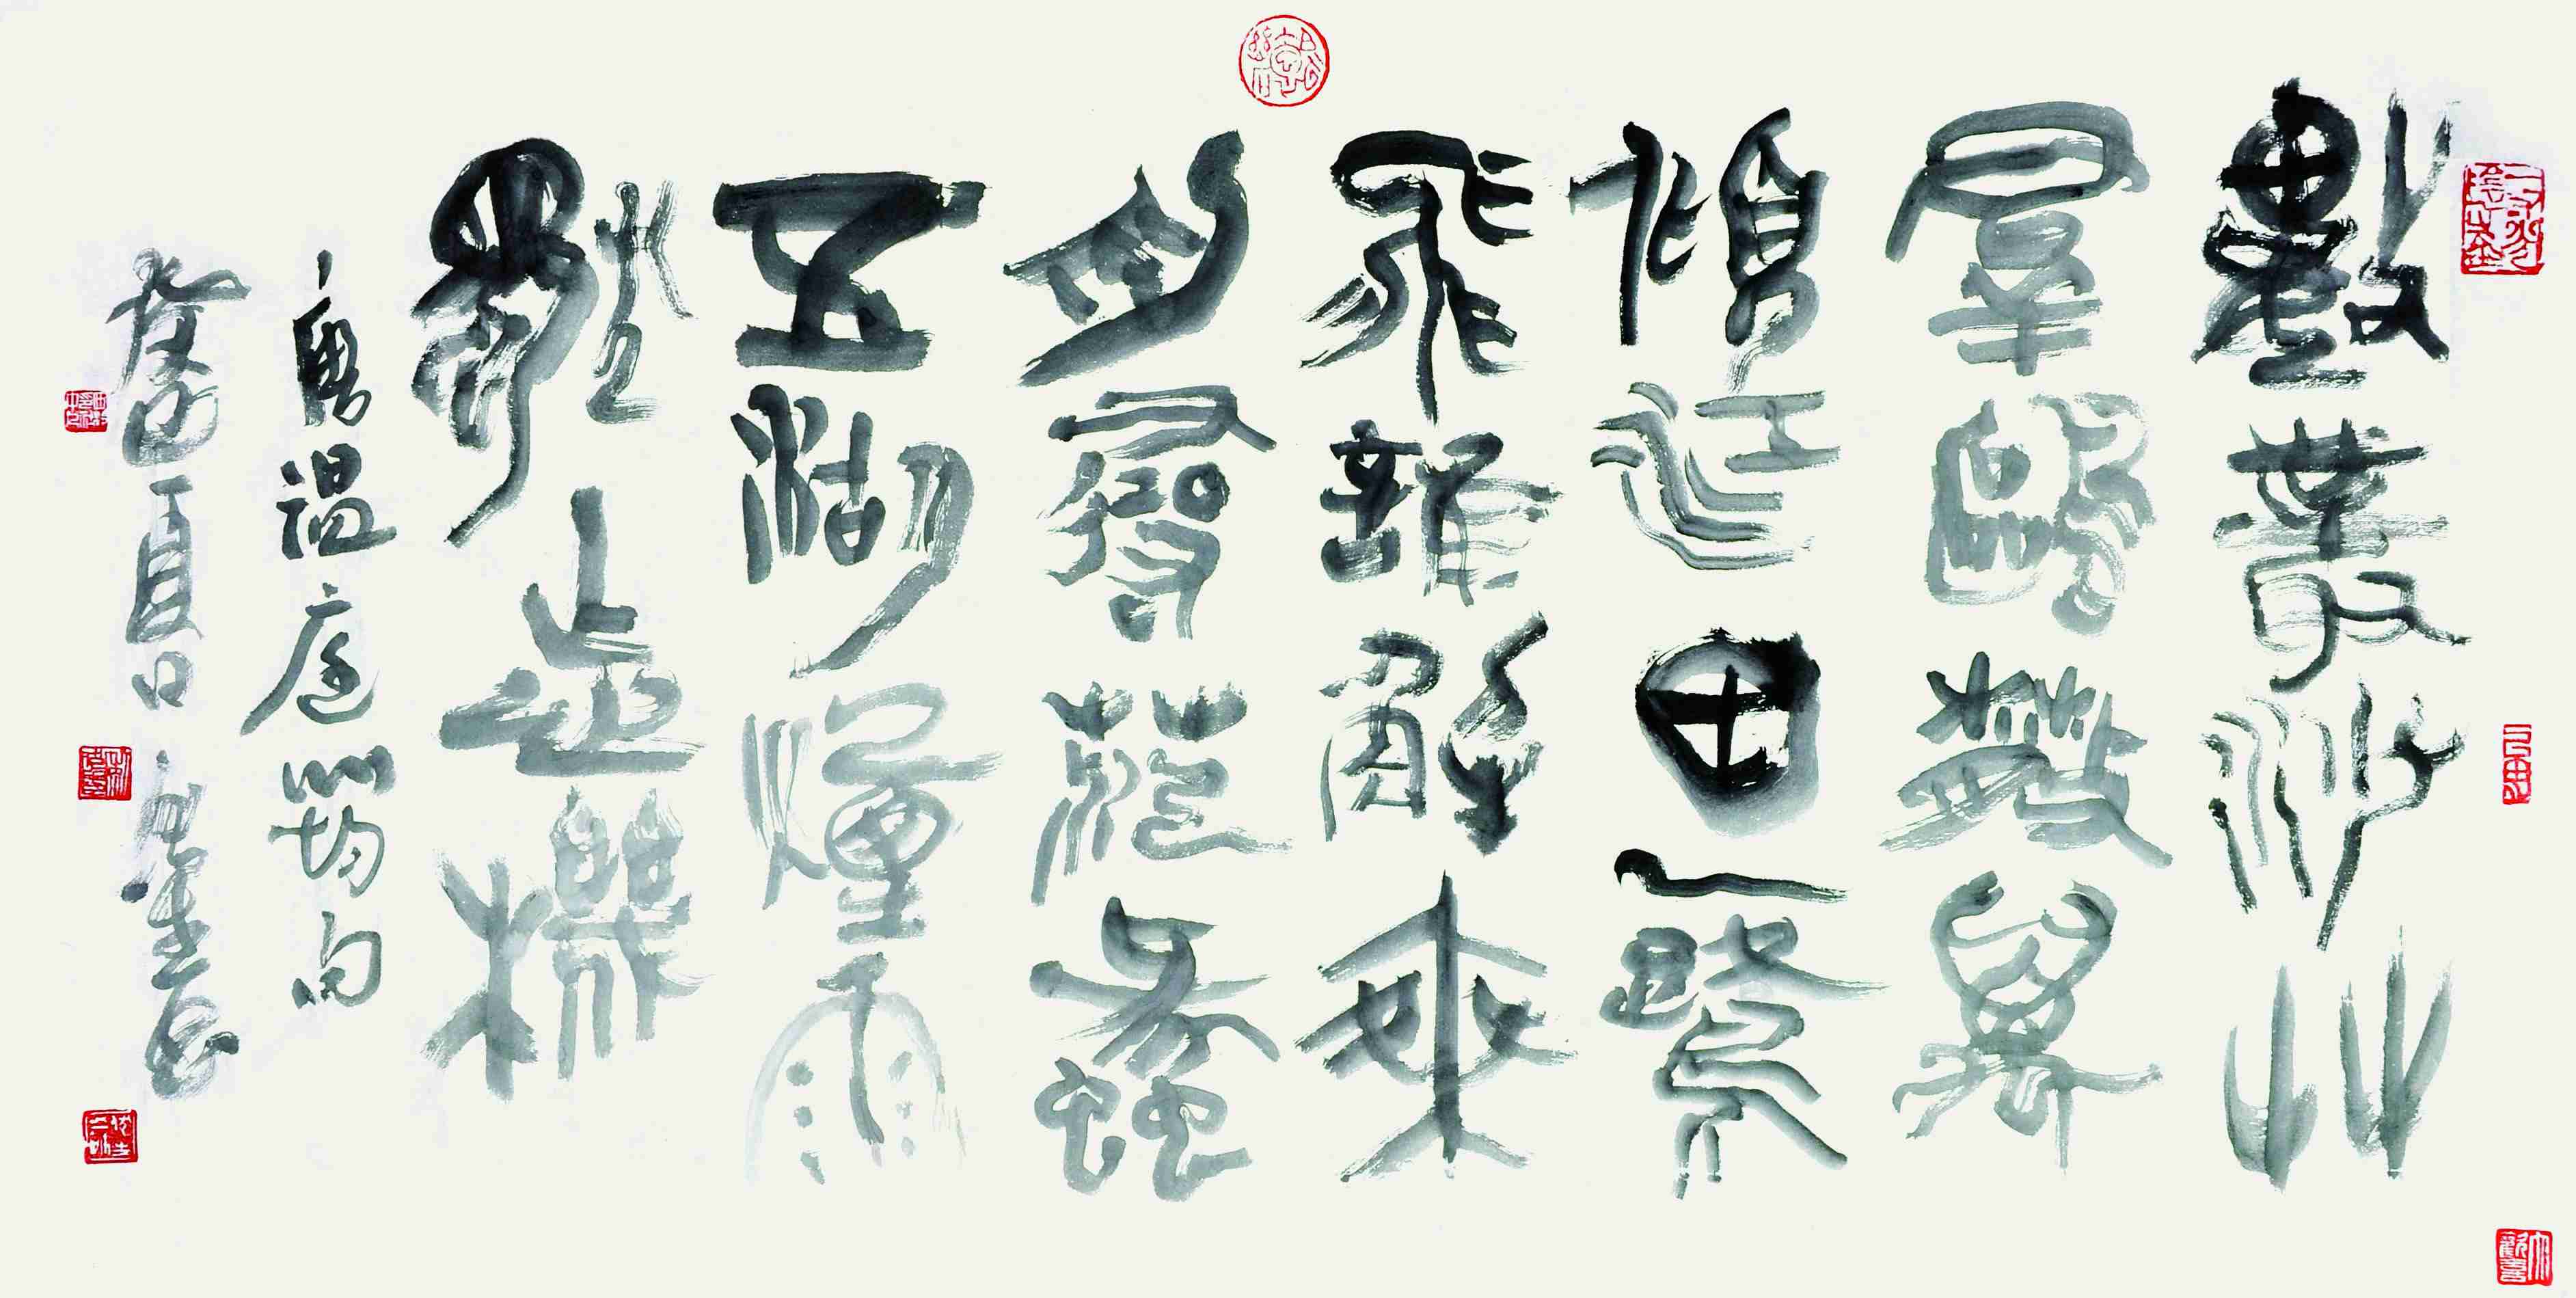 數叢沙艸
羣鷗散萬
頃江田一鷺
飛誰解乘
舟尋范蠡
五湖煙雨
獨忘機
唐溫庭筠句
癸巳夏日